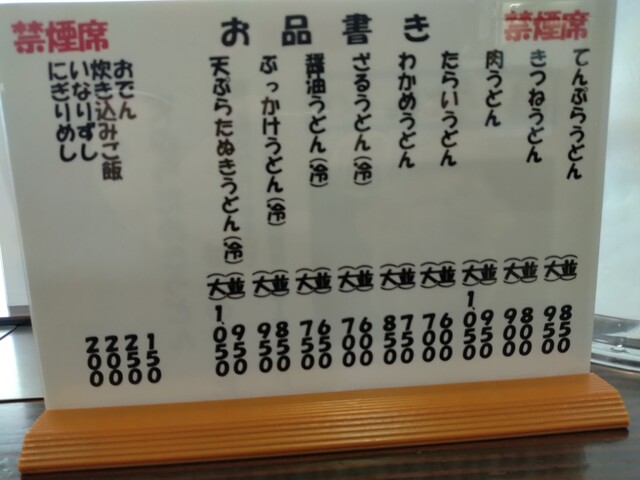 お品書き
禁煙席
てんぷらうどん (並) 850 (大) 950
きつねうどん (並) 800 (大) 900
肉うどん (並) 950 (大) 1.050
たらいうどん (並) 600 (大) 700
わかめうどん (並) 750 (大) 850
ざるうどん(冷) (並) 600 (大) 700
醤油うどん(冷) (並) 650 (大) 750
ぶっかけうどん(冷) (並) 850 (大) 950
天ぷらたぬきうどん(冷) (並) 950 (大) 1.050
禁煙席
おでん 150
炊き込みご飯 250
いなりずし 200
にぎりめし 200